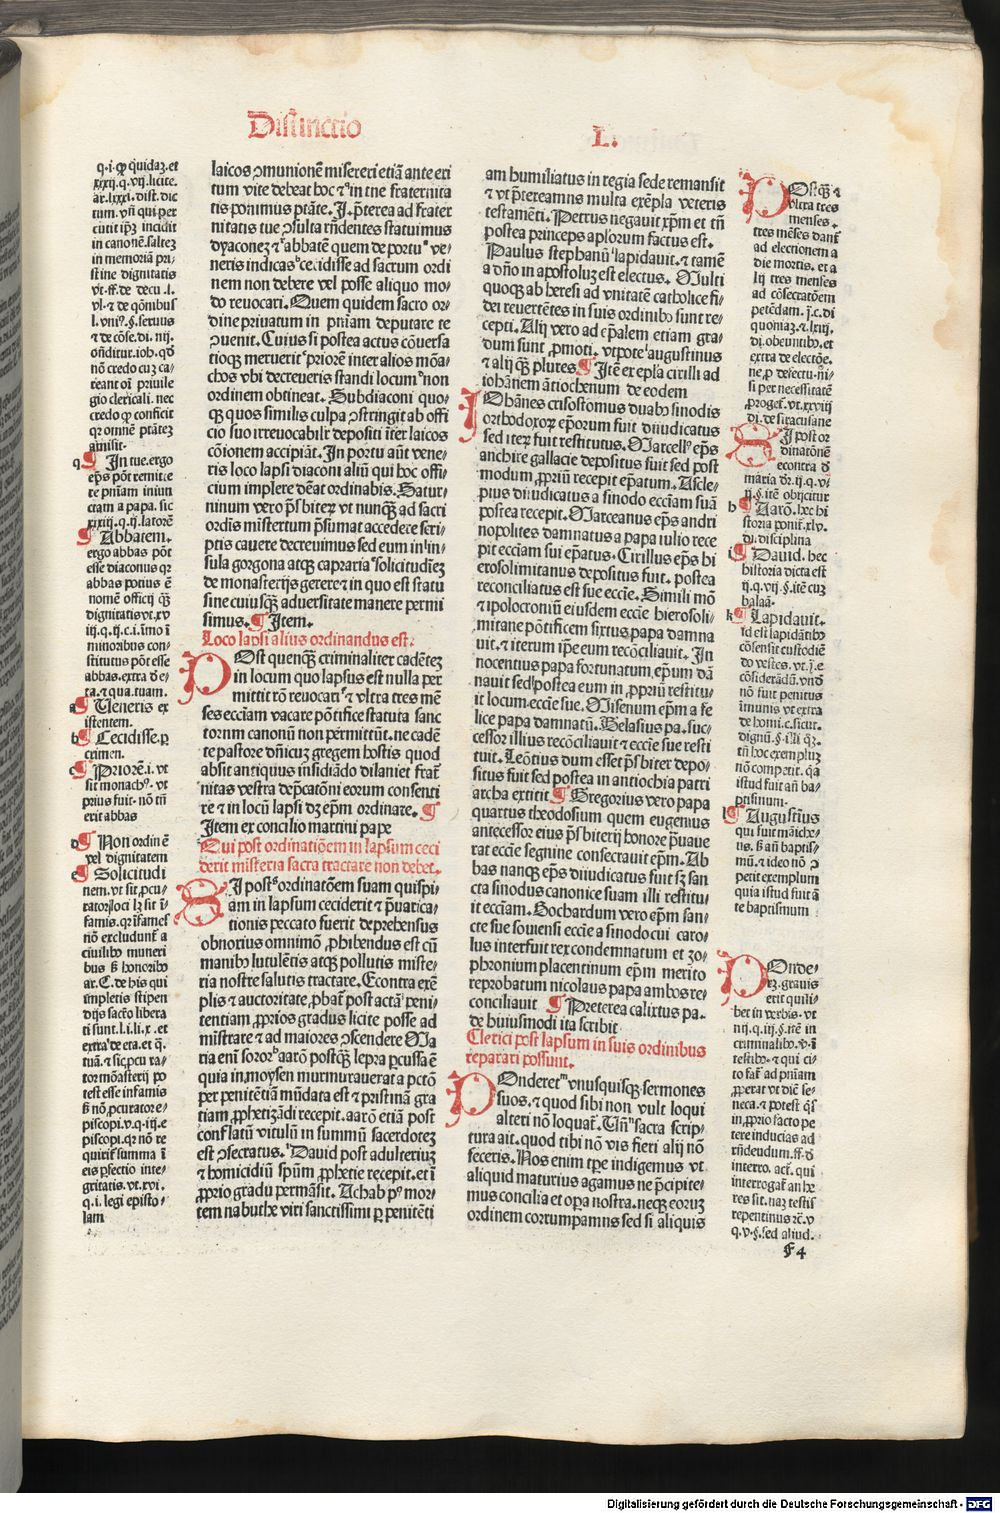 Distinctio
L.
q.i. ꝙ quidaꝫ.et
xxxij.q.vij.licite.
ar.lxxxi.dist.dic
tum. vn̄ qui per
cutit ip̄ꝫ incidit
in canonē.salteꝫ
in memoriā pri⸗
stine dignitatis
vt.ff.de decu.l.
vl.⁊ de q̄onibus
l.vni⁹.§.seruus
⁊ de cōse.di. iiij.
on̄ditur.iob.qd̄
nō credo cuꝫ ca⸗
reant oī priuile
gio clericali. nec
credo ꝙ conficit
qꝛ omnē ptātez
amisit.
q ¶ In tue.ergo
ep̄s pōt remitte
re pn̄iam iniun
ctam a papa. sic
xxiij.q.ij.latorē
¶ Abbatem.
ergo abbas pōt
esse diaconus qꝛ
abbas potius ē
nomē officij qꝫ̄
dignitatis vt.xv
iij.q.ij.c.i.imo ī
minoribus con⸗
stitutus pōt esse
abbas.extra d̄ e⸗
ta.⁊ qua.tuam.
a ¶ Ueneris ex
istentem.
b ¶ Cecidisse.ꝑ
crimen.
c ¶ Priorē.i. vt
sit monach⁹. vt
prius fuit. nō tn̄
erit abbas
d ¶ Non ordin ē
vel dignitatem
e ¶ Solicitudi
nem.vt sit ꝓcu⸗
rator loci lꝫ sit ī⸗
famis.qꝛ īfames
nō excludunt̄ a
ciuilibꝰ muneri
bus ß honoribꝰ
ar.C.de his qui
impletis stipen
dijs sacrō libera
ti sunt.l.i.li.x.et
extra de eta.et q̄.
tuā.⁊ sic ꝓcu ra⸗
tor mōasterij po
test esse infamis
ß nō ꝓcurator e⸗
piscopi.v.q.iij.e
piscopi.qꝛ nō re
quirit̄ summa ī
eis ꝑfectio inte⸗
gritatis.vt.xvi.
q.i. legi episto⸗
lam
laicos ꝯmunionē misereri etiā ante exi
tum vite debeat hoc ⁊ in tue fraternita
tis ponimus ptāte. J. p̄terea ad frater
nitatis tue ꝯsulta rn̄dentes statuimus
dyaconeꝫ ⁊ abbatē quem de portu ve⸗
neris indicas cecidisse ad sacrum ordi
nem non debere vel posse aliquo mo⸗
do reuocari. Quem quidem sacro or⸗
dine priuatum in pn̄iam deputare te
ꝯuenit. Cuius si postea actus cōuersa
tioqꝫ meruerit priorē inter alios mōa⸗
chos vbi decreueris standi locum non
ordinem obtineat. Subdiaconi quo⸗
qꝫ quos similis culpa ꝯstringit ab offi
cio suo irreuocabilr̄ depositi īter laicos
cōionem accipiāt. In portu aūt vene⸗
ris loco lapsi diaconi aliū qui hoc offi⸗
cium implere dēat ordinabis. Satur⸗
ninum vero p̄sbiteꝝ vt nunqꝫ̄ ad sacri
ordīs misterium p̄sumat accedere scri⸗
ptis cauere decreuimus sed eum in in⸗
sula gorgona atqꝫ capraria solicitudīeꝫ
de monasterijs gerere ⁊ in quo est statu
sine cuiusqꝫ̄ aduersitate manere permi
simus. ¶ Item.
Loco lapsi alius ordinandus est.
POst quenqꝫ̄ criminaliter cadētez
in locum quo lapsus est nulla per
mittit rō reuocari ⁊ vltra tres mē
ses eccl̄iam vacare pōtifice statuta sanc
torum canonū non permittūt. ne cadē
te pastore dn̄icuꝫ gregem hostis quod
absit antiquus insidiādo dilaniet frat̄
nitas vestra dep̄catōni eorum consenti
re ⁊ in locū lapsi dꝫ ep̄m ordinare. ¶
Item ex concilio martini pape
Qui post ordinatiōem in lapsum ceci
derit misteria sacra tractare non debet.
SI post ordinatōem suam quispi⸗
am in lapsum ceciderit ⁊ p̄uarica⸗
tionis peccato fuerit deprehensus
obnoxius omnimō ꝓhibendus est cū
manibꝰ lutulētis atqꝫ pollutis miste⸗
ria nostre salutis tractare. Econtra exē
plis ⁊ auctoritate ꝓbat̄ post actā peni⸗
tentiam ꝓprios gradus licite posse ad
mīstrare ⁊ ad maiores ꝯscendere Ma
ria enī soror aarō postqꝫ̄ lepra ꝑcussa ē
quia in moysen murmurauerat a pctō
per penitētiam mūdata est ⁊ pristinā gra
tiam ꝓphetizādi recepit. aarō etiā post
conflatū vitulū in summū sacerdoteꝫ
est ꝯsecratus. Dauid post adulteriuꝫ
⁊ homicidiū spūm ꝓphetie recepit. et ī
ꝓprio gradu permāsit. Achab pꝰ mor⸗
tem nabuthe viri sanctissimi ꝑ penitēti
am humiliatus in regia sede remansit
⁊ vt p̄tereamus multa exēpla veteris
testamēti. Petrus negauit xp̄m et tn̄
postea princeps apl̄orum factus est.
Paulus stephanū lapidauit. ⁊ tamē
a dn̄o in apostoluꝫ est electus. Multi
quoqꝫ ab heresi ad vnitatē catholice fi⸗
dei reuertētes in suis ordinibꝰ sunt re⸗
cepti. Alij vero ad ep̄alem etiam gra⸗
dum sunt ꝓmoti. vtpote augustinus
⁊ alij qꝫ̄ plures ¶ Itē et epl̄a cirilli ad
iohānem ātiochenum de eodem
IOhānes crisostomus duabꝰ sinodis
orthodoxoꝝ ep̄orum fuit diiudicatus
sed iteꝝ fuit restitutus. Marcell⁹ ep̄s
anchire gallacie depositus fuit sed post
modum ꝓpriū recepit ep̄atum. Ascle⸗
pius diiudicatus a sinodo eccl̄iam suā
postea recepit. Marceanus ep̄s andri
nopolites damnatus a papa iulio rece
pit eccl̄iam sui ep̄atus. Cirillus ep̄s hi
erosolimitanus depositus fuit. postea
reconciliatus est sue eccl̄ie. Simili mō
⁊ ipolocroniū eiusdem eccl̄ie hierosoli⸗
mitane pōtificem sixtus papa damna
uit. ⁊ iterum ip̄e eum recōciliauit. In
nocentius papa fortunatum ep̄um dā
nauit sed postea eum in ꝓpriū restitu⸗
it locum. eccl̄ie sue. Misenum ep̄m a fe
lice papa damnatū. Gelasius pa. suc⸗
cessor illius recōciliauit ⁊ eccl̄ie sue resti
tuit. Leōtius dum esset p̄sbiter depo⸗
situs fuit sed postea in antiochia patri
archa extitit ¶ Gregorius vero papa
quartus theodosium quem eugenius
antecessor eius p̄sbiterij honore p̄uaue
rat eccl̄ie segnine consecrauit ep̄m. Ab
bas nanqꝫ ep̄s diiudicatus fuit sꝫ san
cta sinodus canonice suam illi restitu⸗
it eccl̄iam. Sochardum vero ep̄m san⸗
cte sue souiensi eccl̄ie a sinodo cui caro⸗
lus interfuit rex condemnatum et zo⸗
phronium placentinum ep̄m merito
reprobatum nicolaus papa ambos re⸗
conciliauit ¶ Preterea calixtus pa.
de huiusmodi ita scribit
Clerici post lapsum in suis ordinibus
reparari possunt.
POnderet vnusquisqꝫ sermones
suos. ⁊ quod sibi non vult loqui
alteri nō loquat̄. Un̄ sacra scrip⸗
tura ait. quod tibi nō vis fieri alij nō
feceris. Nos enim tp̄e indigemus vt
aliquid maturius agamus ne p̄cipite⸗
mus concilia et opa nostra. neqꝫ eoruꝫ
ordinem corrumpamus sed si aliquis
POstqꝫ̄ ⁊
vltra tres
menses.
tres mēses dant̄
ad electionem a
die mortis. et a
lij tres menses
ad cōsecratōem
petēdam. j.c.di
quoniaꝫ.⁊ lxiij.
di. obeuntibꝰ. et
extra de electōe.
ne ꝓ defectu. ni⸗
si per necessitatē
ꝓroget̄. vt. xxviij
di. de siracusane
SI post or
dinatōnē
econtra d̄
maria dr̄. ij. q. vi
ij. §. itē obijcitur
h ¶ Aarō. hec hi
storia ponit̄. xlv.
di. disciplina
i ¶ Dauid. hec
historia dicta est
ij. q. vij §. itē cuꝫ
balaā.
k ¶ Lapidauit.
id est lapidātibꝰ
cōsensit custodiē
do vestes. vt. j. e
cōsiderādū. vn̄ d̄
nō fuit penitus
īmunis vt extra
de homi. c. sicut.
dignū. §. illi qꝫ.
tn̄ hoc exempluꝫ
nō competit. qꝛ
istud fuit an̄ ba⸗
ptismum.
l ¶ Augustin̄us
qui fuit manīche⸗
us. ß an̄ baptis⸗
mū. ⁊ ideo nō ꝯ
petit exemplum
quia istud fuit ā
te baptismum
POnde⸗
reꝫ. grauis
erit quili⸗
bet in verbis. vt
nij. q. iij. §. itē in
criminalibꝰ. v. ī
testibꝰ. ⁊ qui ci⸗
to fat̄ ad pn̄iam
ꝓperat vt dic̄ se⸗
neca. ⁊ potest qs̄
in ꝓprio facto pe
tere inducias ad
rn̄dendum. ff. d̄
interro. act̄. qui
interrogat̄ an he
res sit. naꝫ testis
repentinus rc̄. v
q. v. §. sed aliud.
f 4
Digitalisierung gefördert durch die Deutsche Forschungsgemeinschaft - DFG